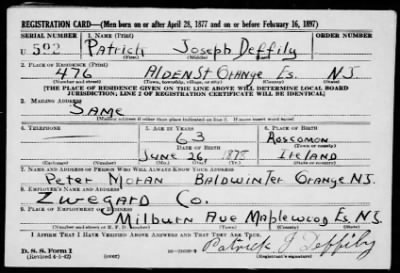 REGISTRATION CARD—(Men born on or after April 28, 1877 and on or before February 16, 1897)
SERIAL NUMBER 1. NAME (Print)
U 592 Patrick Joseph Deffily
(First) (Middle) (Last)
2. PLACE OF RESIDENCE (Print)
476 Alden St Orange Es. N.J.
(Number and street) (Town, township, village, or city) (County) (State)
[THE PLACE OF RESIDENCE GIVEN ON THE LINE ABOVE WILL DETERMINE LOCAL BOARD
JURISDICTION; LINE 2 OF REGISTRATION CERTIFICATE WILL BE IDENTICAL]
3. MAILING ADDRESS
Same
[Mailing address if other than place indicated on line 2. If same insert word same]
4. TELEPHONE 5. AGE IN YEARS 6. PLACE OF BIRTH
63 Roscomon
DATE OF BIRTH (Town or county)
June 26, 1878 Ireland
(Exchange) (Number) (Mo.) (Day) (Yr.) (State or country)
7. NAME AND ADDRESS OF PERSON WHO WILL ALWAYS KNOW YOUR ADDRESS
Peter Moran Baldwin Ter Orange N.J.
8. EMPLOYER'S NAME AND ADDRESS
Zwegard Co.
9. PLACE OF EMPLOYMENT OR BUSINESS
Milburn Ave Maplewood Es. N.J.
(Number and street or R. F. D. number) (Town) (County) (State)
I AFFIRM THAT I HAVE VERIFIED ABOVE ANSWERS AND THAT THEY ARE TRUE.
Patrick J Deffily
D. S. S. Form 1
(Revised 4-1-42)
(Registrant's signature)